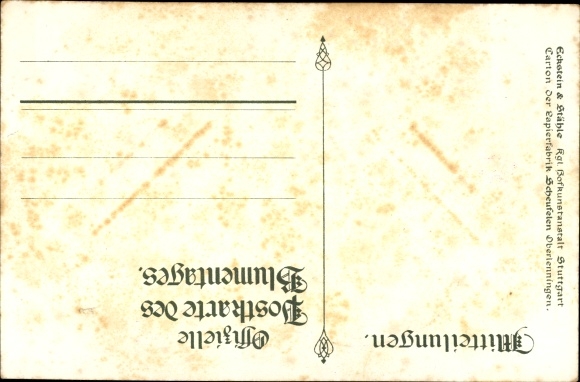 Offizielle
Postkarte des
Blumentages.
Mitteilungen.
Eckstein & Stähle Kgl. Hofkunstanstalt Stuttgart
Carton der Papierfabrik Scheufelen Oberlenningen.